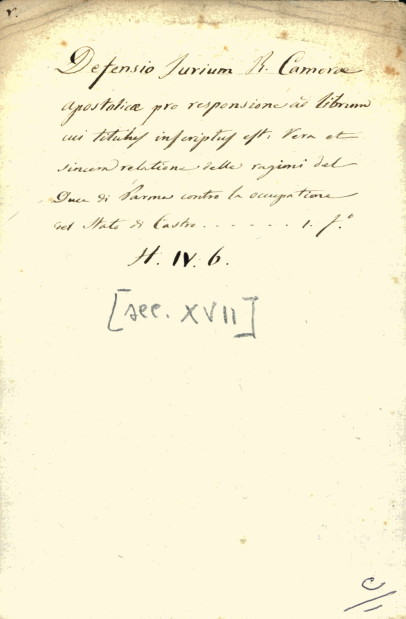 v.
Defensio Jurium R. Camerae
apostolicae pro responsione ad librum
cui titulus inscriptus est. Vera et
sincera relatione delle ragioni del
Duca di Parma contro la occupatione
del Stato di Castro . . . . . . 1. f.º
H. IV. 6.
[sec. XVII]
C